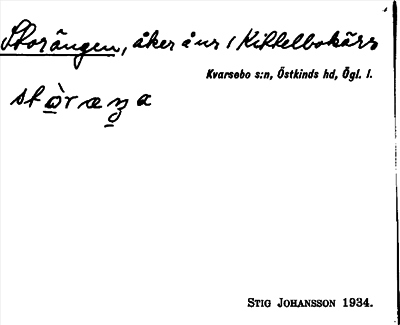 Storängen, åker å nr 1 Kittelbokärr
Kvarsebo s:n, Östkinds hd, Ögl. l.
STIG JOHANSSON 1934.